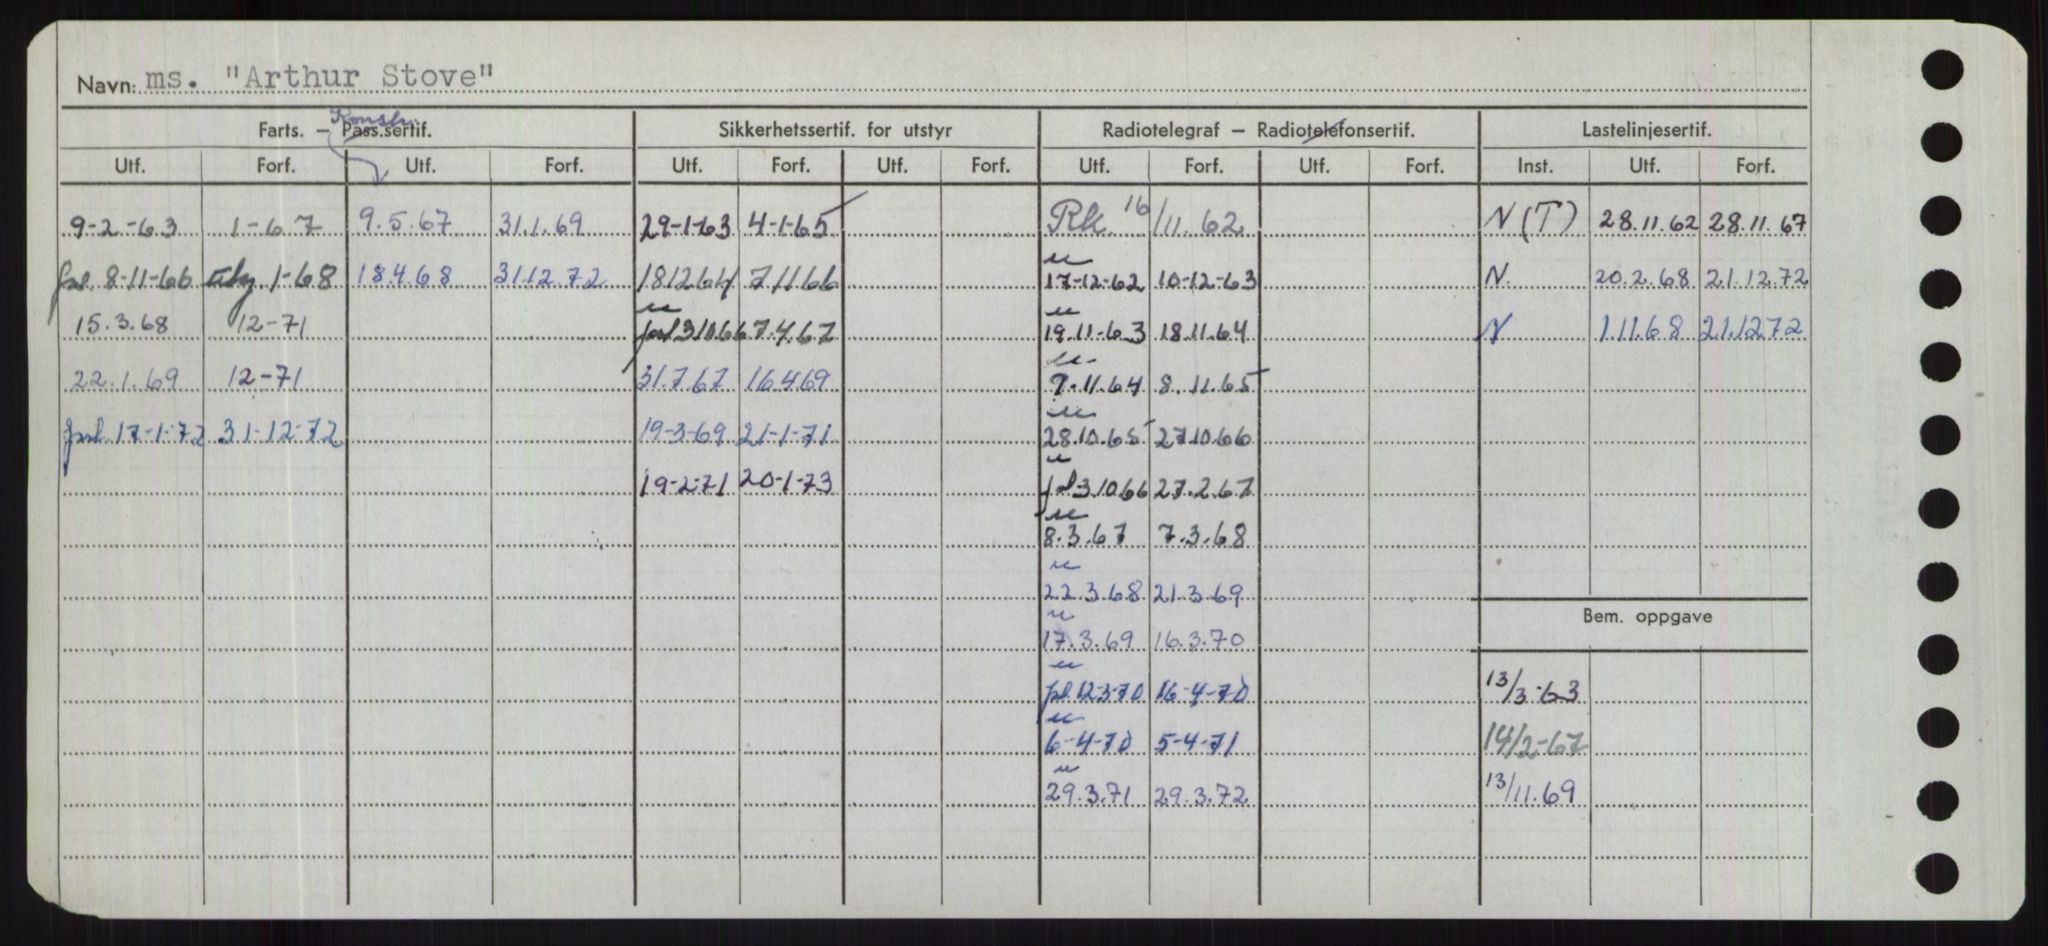 Navn: ms. "Arthur Stove"
Konstr.
Farts. – Pass.sertif. Sikkerhetssertif. for utstyr Radiotelegraf – Radiotelefonsertif. Lastelinjesertif.
Utf. Forf. Utf. Forf. Utf. Forf. Utf. Forf. Utf. Forf. Utf. Forf. Inst. Utf. Forf.
9-2-63 1-67 9.5.67 31.1.69 29-1-63 4-1-65 Rk. 16/11.62 N(T) 28.11.62 28.11.67
8-11-66 1-68 18.4.68 31.12.72 18.12.64 7.11.66 17-12-62 10-12-63 N. 20.2.68 21.12.72
15.3.68 12-71 3.10.66 7.4.67 19.11-63 18.11.64 N 1.11.68 21.12.72
22.1.69 12-71 31.7.67 16.4.69 9.11.64 8.11.65
17-1-72 31-12-72 19-3-69 21-1-71 28.10.65 27.10.66
19-2-71 20-1-73 3.10.66 27.2.67
8.3.67 7.3.68
22.3.68 21.3.69
Bem. oppgave
17.3.69 16.3.70
12-3-70 16-4-70 13/3-63
6-4-70 5-4-71 14/2-67
29.3.71 29.3.72 13/11.69